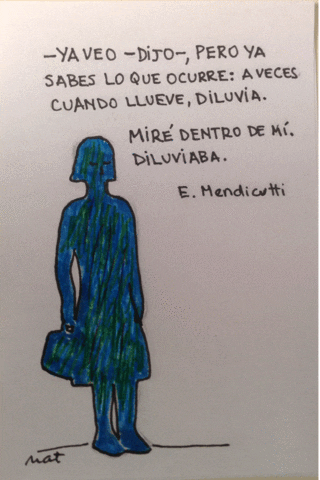 —YA VEO —DIJO—, PERO YA
SABES LO QUE OCURRE: A VECES
CUANDO LLUEVE, DILUVIA.
MIRÉ DENTRO DE MÍ.
DILUVIABA.
E. Mendicutti
nat